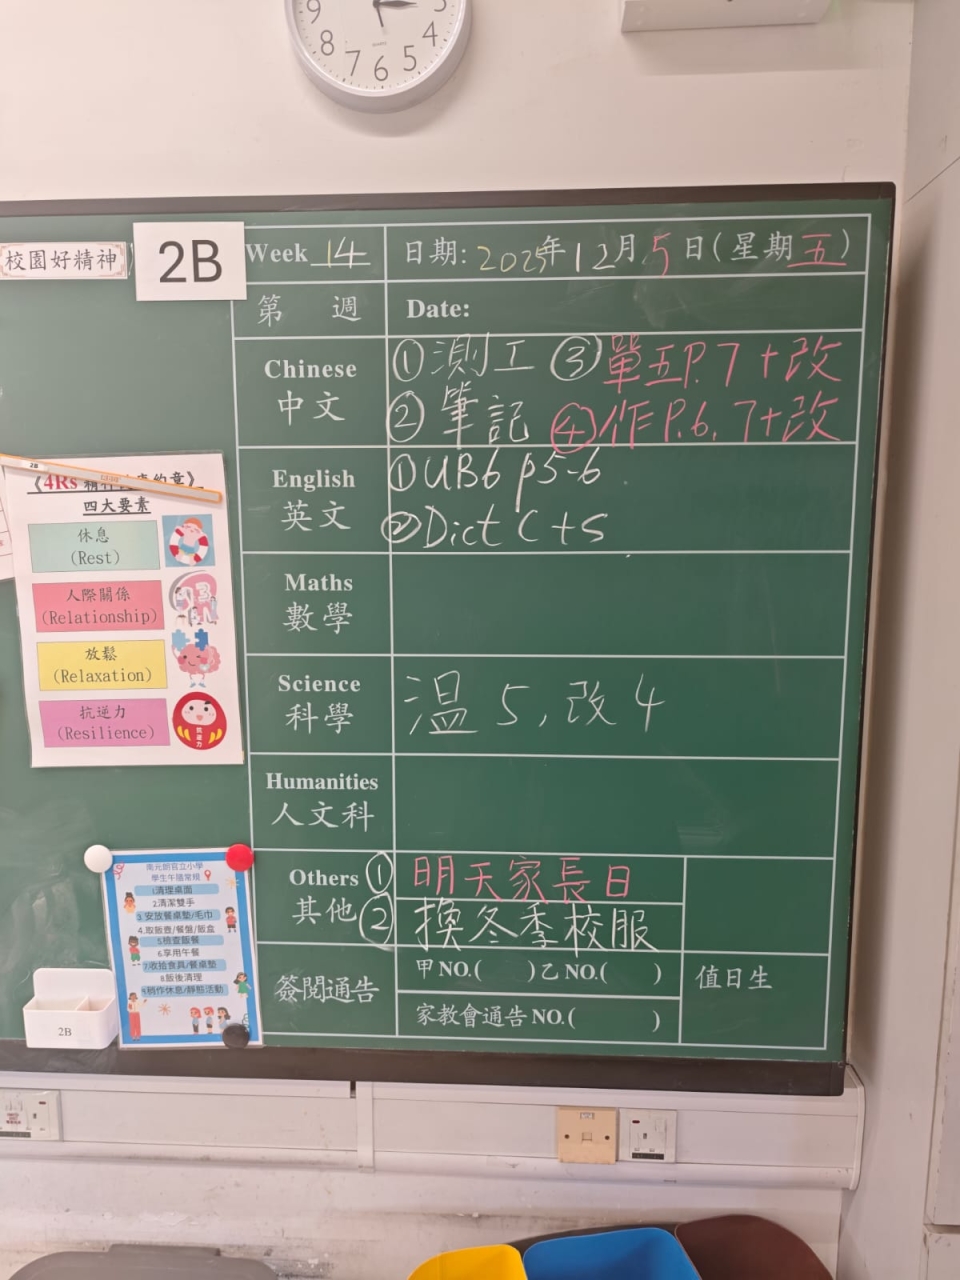 9 3
8 4
7 6 5
校園好精神
2B
Week 14
日期: 2025年12月5日(星期五)
第 週
Date:
Chinese
中文
①測工 ③單五P.7+改
②筆記 ④作P.6,7+改
English
英文
①UB6 p5-6
②Dict C+S
Maths
數學
Science
科學
溫5,改4
Humanities
人文科
Others
其他
①明天家長日
②換冬季校服
簽閱通告
甲NO.( )乙NO.( )
家教會通告NO.( )
值日生
2B
《4Rs
四大要素
休息
(Rest)
人際關係
(Relationship)
放鬆
(Relaxation)
抗逆力
(Resilience)
抗逆力
南元朗官立小學
學生午膳常規
1.清理桌面
2.清潔雙手
3.安放餐桌墊/毛巾
4.取飯壺/餐盤/飯盒
5.檢查飯餐
6.享用午餐
7.收拾食具/餐桌墊
8.飯後清理
9.稍作休息/靜態活動
2B